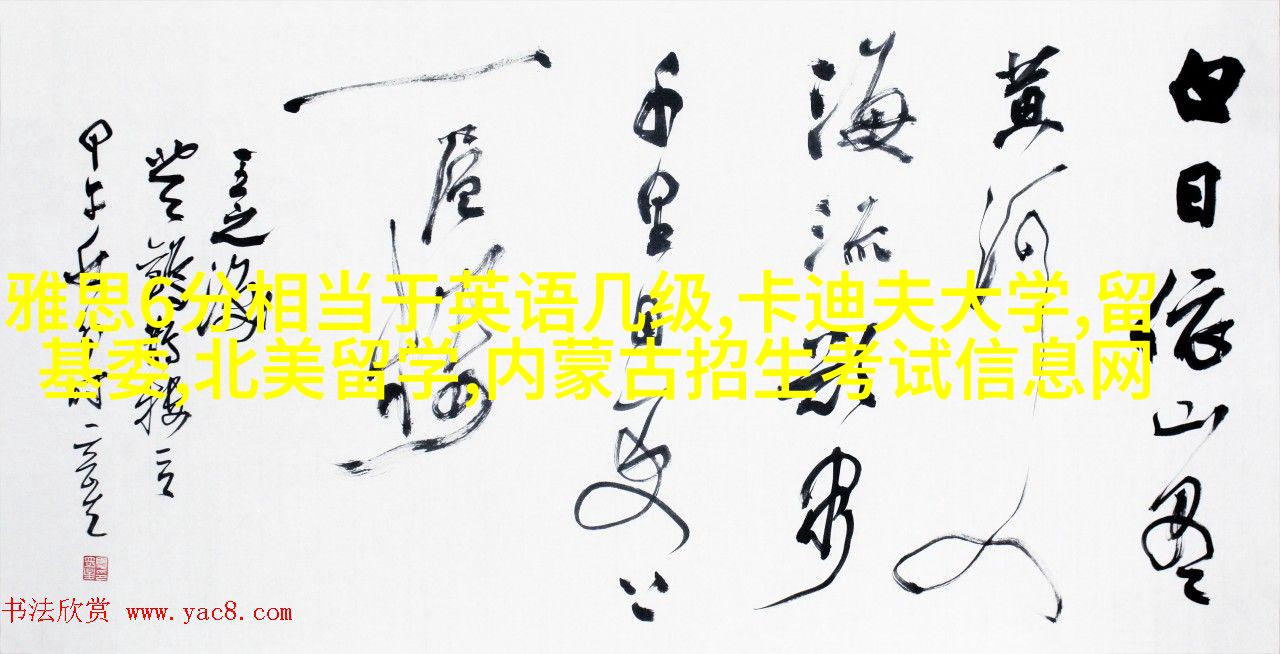 白日依山尽
黄河入
海流欲穷
千里目更上
一层楼
王之涣
登鹳雀楼
甲午年
雅思6分相当于英语几级,卡迪夫大学,留
基委,北美留学,内蒙古招生考试信息网
书法欣赏 www.yac8.com